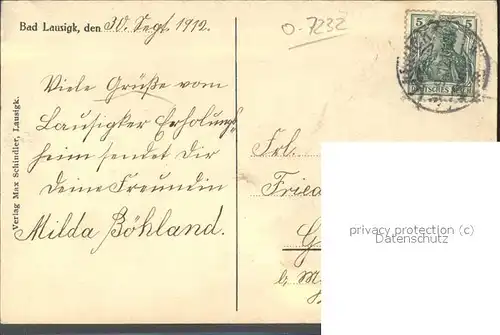 Bad Lausigk, den 30. Sept. 1912.
0-7232
5 5
DEUTSCHES REICH
Viele Grüße vom
Lausigker Erholungs
heim sendet dir
Deine Freundin
Milda Böhland.
Verlag Max Schindler, Lausigk.
Frl.
Fried
G
b. M
privacy protection (c)
Datenschutz